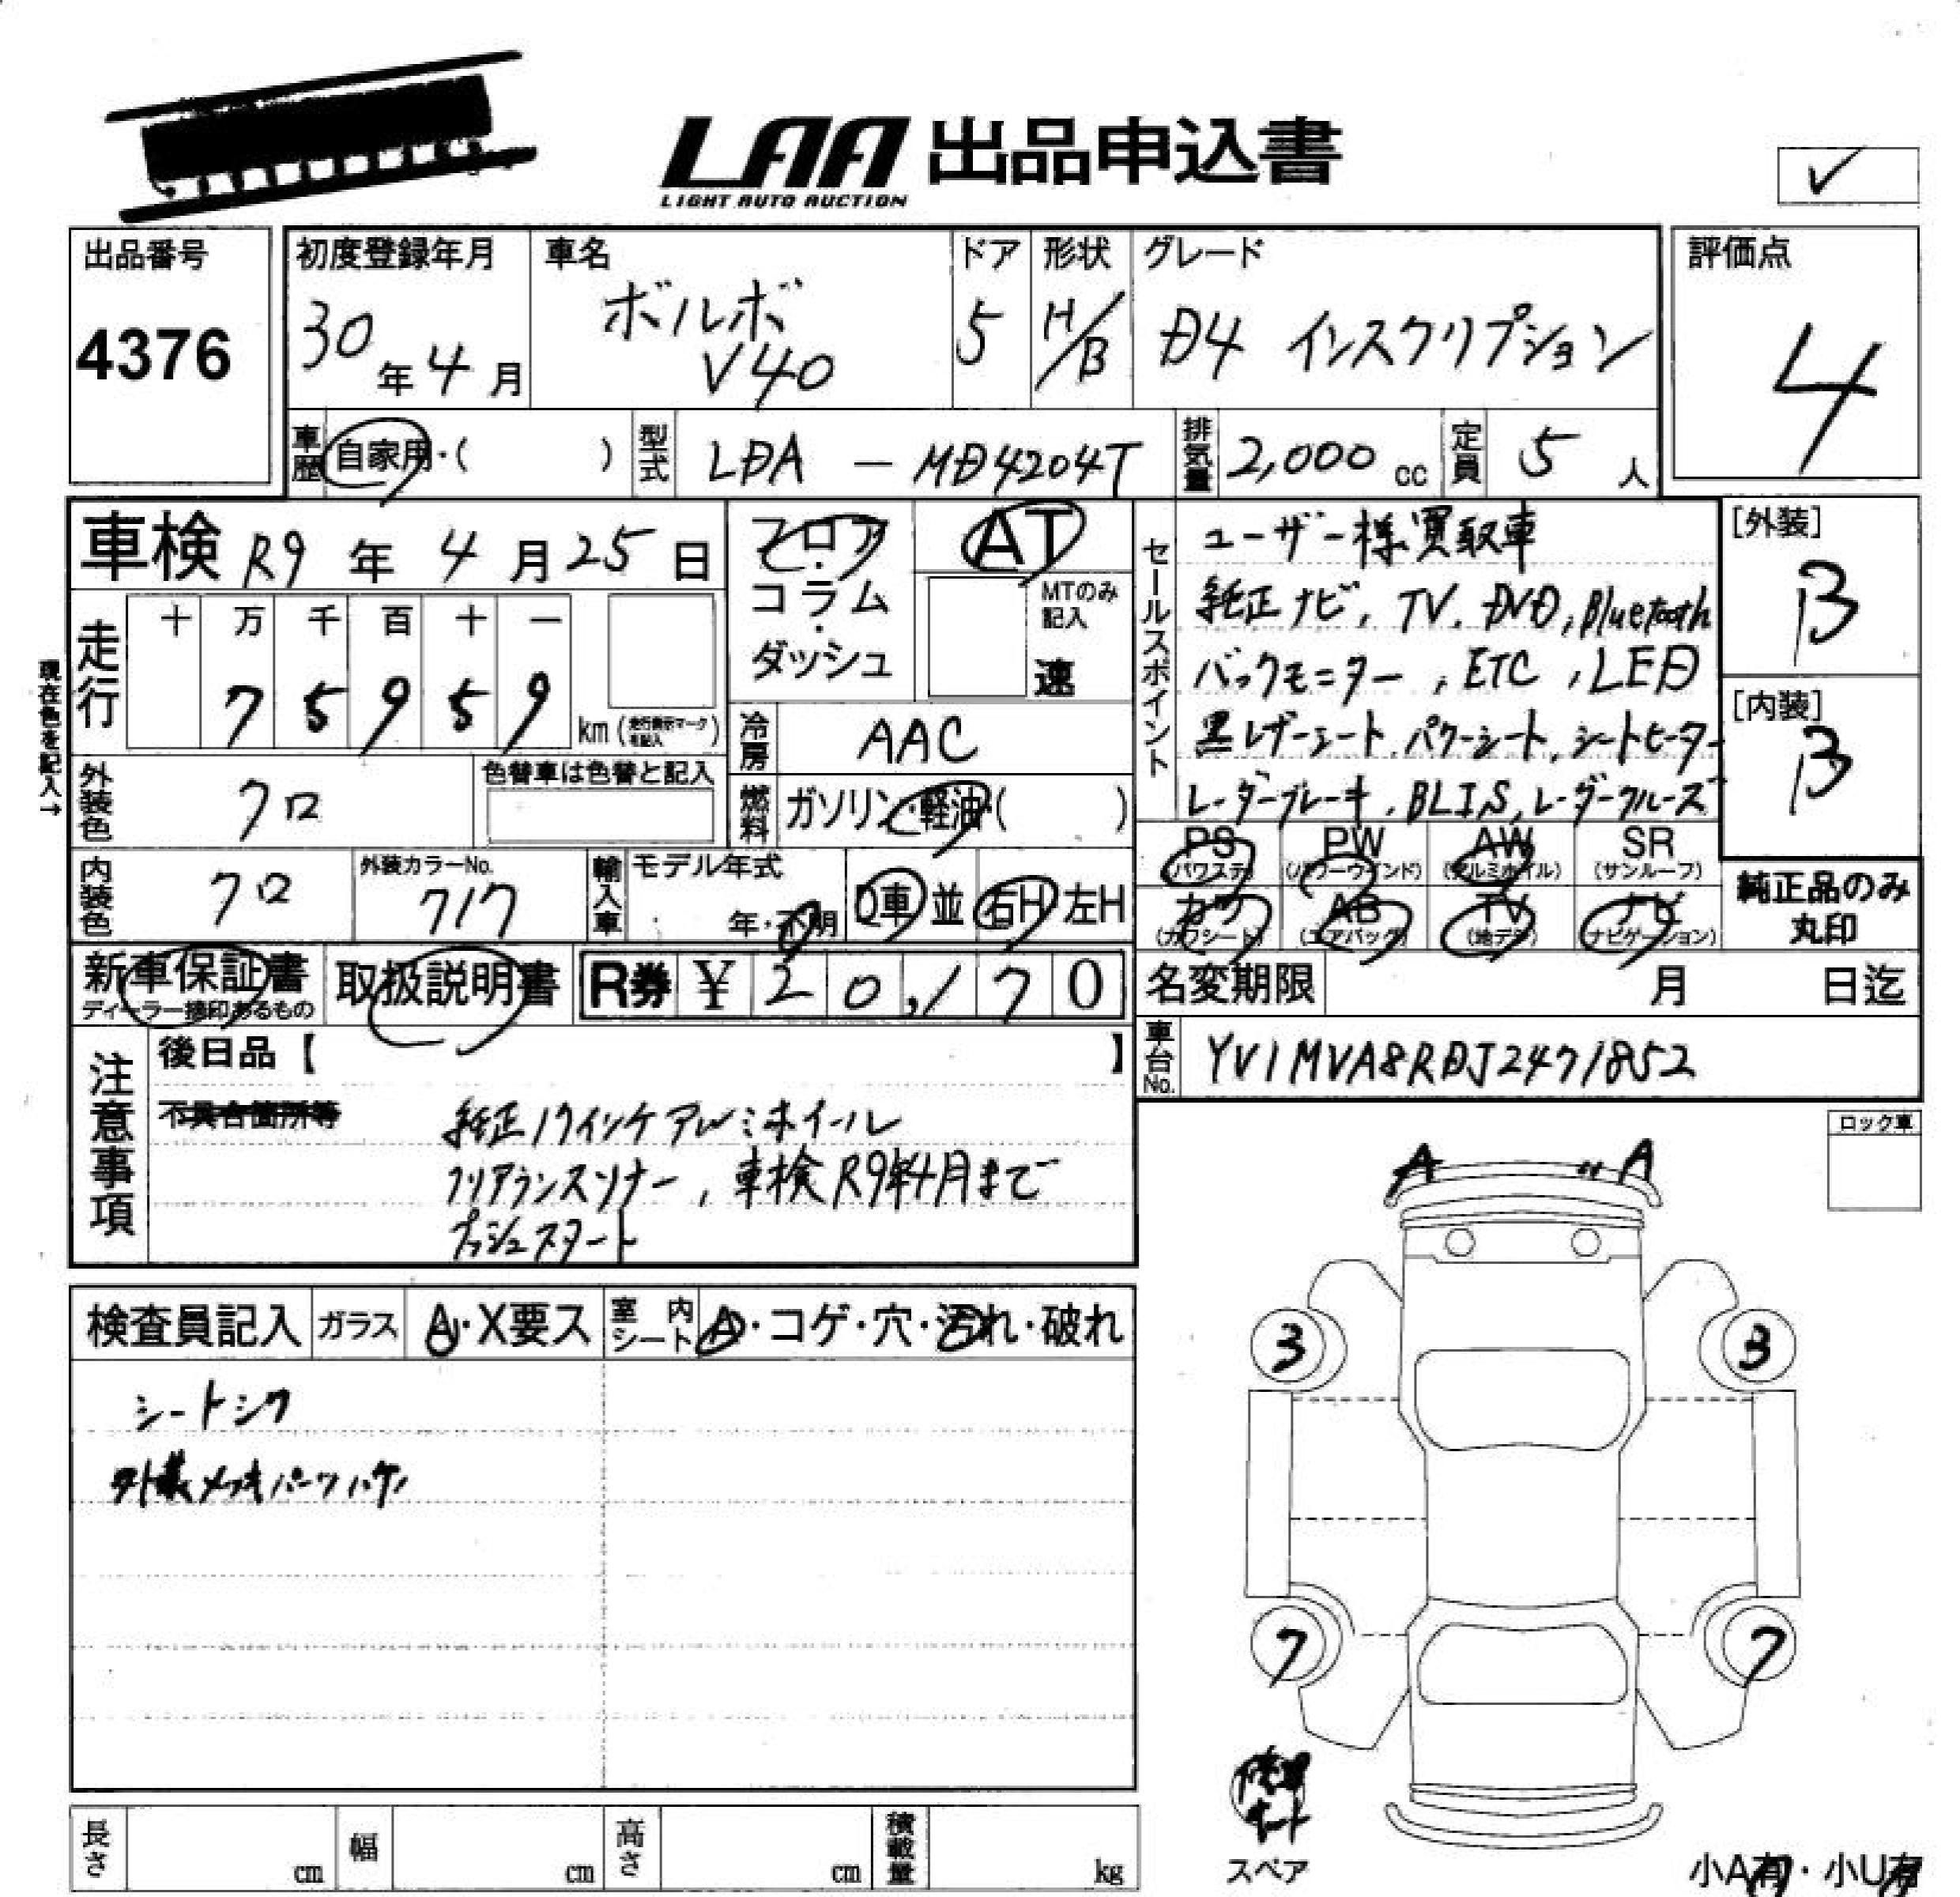 LAA 出品申込書
LIGHT AUTO AUCTION
✓
出品番号
4376
初度登録年月
30年4月
車名
ボルボ
V40
ドア
5
形状
H/B
グレード
D4 インスクリプション
評価点
4
車歴
自家用・( )
型式
LDA - MD4204T
排気量
2,000 cc
定員
5 人
車検 R9年4月25日
フロア・コラム・ダッシュ
AT
MTのみ記入
速
現在色を記入→
走行
十 万 千 百 十 一
7 5 9 5 9
km (走行表示マークを記入)
冷房
AAC
外装色
クロ
色替車は色替と記入
燃料
ガソリン・軽油・( )
内装色
クロ
外装カラーNo.
717
輸入車
モデル年式
年・不明
D車 並
右H 左H
セールスポイント
ユーザー様買取車
純正ナビ, TV, DVD, Bluetooth
バックモニター, ETC, LED
黒レザーシート, パワーシート, シートヒーター
レーダーブレーキ, BLIS, レーダークルーズ
[外装]
B
[内装]
B
PS (パワステ)
PW (パワーウインド)
AW (アルミホイル)
SR (サンルーフ)
カワ (カワシート)
AB (エアバッグ)
TV (地デジ)
ナビ (ナビゲーション)
純正品のみ
丸印
新車保証書
ディーラー捺印あるもの
取扱説明書
R券 ¥ 20,170
名変期限 月 日迄
車台No.
YV1MVA8RDJ2471852
注意事項
後日品【 】
不具合箇所等
純正17インチアルミホイール
クリアランスソナー, 車検R9年4月まで
プッシュスタート
ロック車
A A
検査員記入
ガラス
A・X要ス
室内シート
A・コゲ・穴・汚れ・破れ
シートシワ
外装メッキパーツハゲ
3 3
7 7
スペア
小A有・小U有
長さ cm
幅 cm
高さ cm
積載量 kg